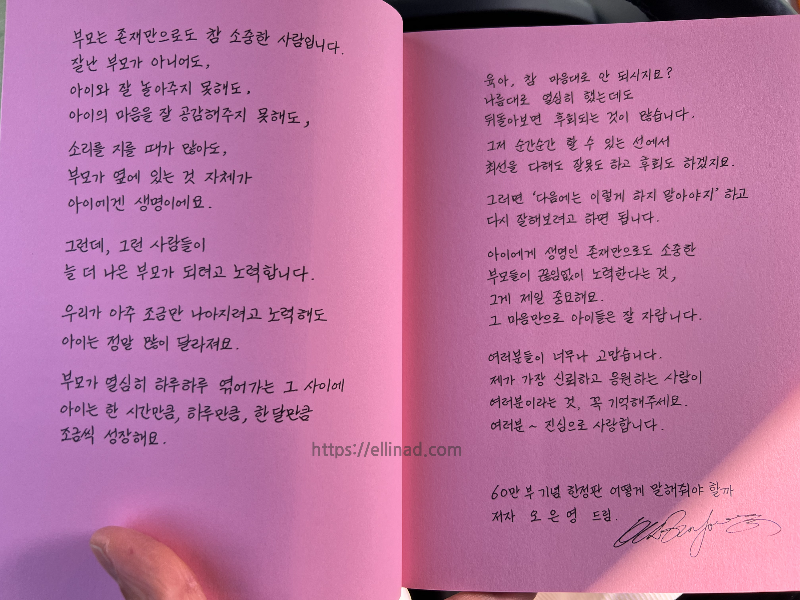 부모는 존재만으로도 참 소중한 사람입니다.
잘난 부모가 아니어도,
아이와 잘 놀아주지 못해도,
아이의 마음을 잘 공감해주지 못해도,
소리를 지를 때가 많아도,
부모가 옆에 있는 것 자체가
아이에겐 생명이에요.
그런데, 그런 사람들이
늘 더 나은 부모가 되려고 노력합니다.
우리가 아주 조금만 나아지려고 노력해도
아이는 정말 많이 달라져요.
부모가 열심히 하루하루 엮어가는 그 사이에
아이는 한 시간만큼, 하루만큼, 한 달만큼
조금씩 성장해요.
육아, 참 마음대로 안 되시지요?
나름대로 열심히 했는데도
뒤돌아보면 후회되는 것이 많습니다.
그저 순간순간 할 수 있는 선에서
최선을 다해도 잘못도 하고 후회도 하겠지요.
그러면 '다음에는 이렇게 하지 말아야지' 하고
다시 잘해보려고 하면 됩니다.
아이에게 생명인 존재만으로도 소중한
부모들이 끊임없이 노력한다는 것,
그게 제일 중요해요.
그 마음만으로 아이들은 잘 자랍니다.
여러분들이 너무나 고맙습니다.
제가 가장 신뢰하고 응원하는 사람이
여러분이라는 것, 꼭 기억해주세요.
여러분~ 진심으로 사랑합니다.
60만 부 기념 한정판 어떻게 말해줘야 할까
저자 오은영 드림.
https://ellinad.com